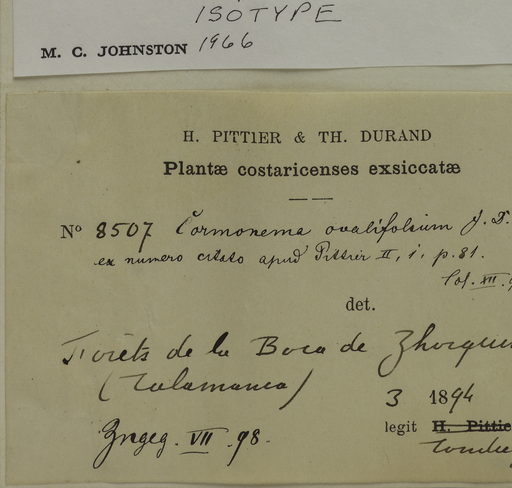 ISOTYPE
M. C. JOHNSTON 1966
H. PITTIER & TH. DURAND
Plantæ costaricenses exsiccatæ
Nº 8507 Cormonema ovalifolium J. D.
ex numero citato apud Pittier II, i, p. 81.
Col. XII.
det.
Forêts de la Boca de Zhorquin
(Talamanca)
3 1894
legit H. Pittie
VII 98.